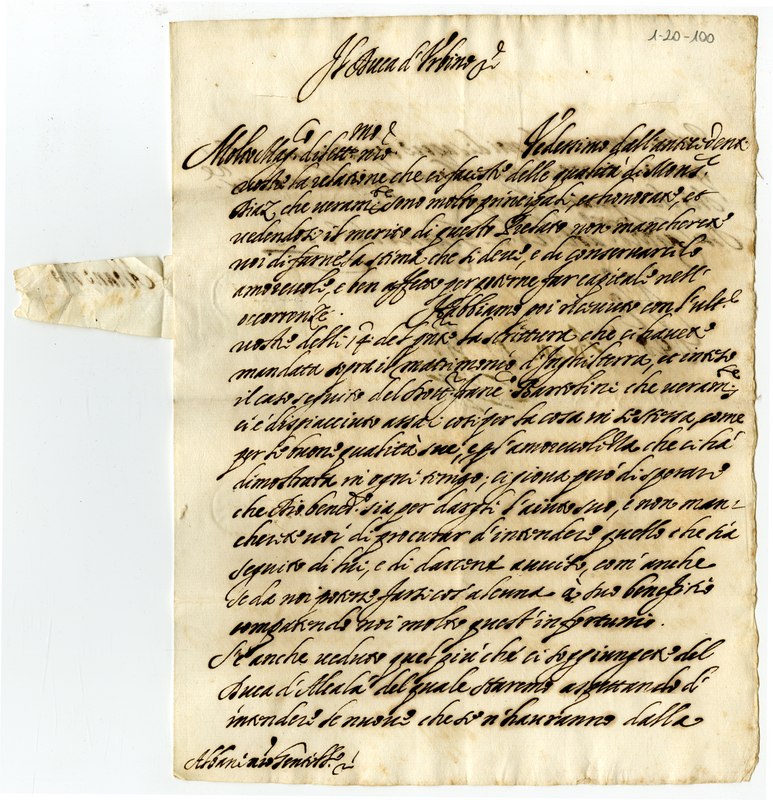 1-20-100
Il Duca d'Urbino
Molto Mag.co dilett.mo nro Vedessimo dall'antecedente
vostra la relatione che ci faceste delle qualità di Mons.r
Diaz che veram.te sono molto principali, et honorate, et
vedendosi il merito di questo Prelato non mancherete
voi di farne la stima che si deve, e di conservarcilo
amorevole, e ben affetto per poterne far capitale nell'
occorrenze. Habbiamo poi ricevuto con l'ult.a
vostra delli 14 del pnte la scrittura che ci havete
mandata sopra il matrimonio d'Inghilterra, et inteso
il caso seguito del Franc.o che veram.te
ci è dispiacciuto assai così per la cosa in se stessa, come
per le buone qualità sue, e p l'amorevolezza che ci hà
dimostrata in ogni tempo; ci giova però di sperare
che Dio bened.o sia per dargli l'aiuto suo, e non man-
cherete voi di procurar d'intendere quello che sia
seguito di lui, e di darcene avviso, com'anche
se da noi potesse farsi cos'alcuna à suo beneficio
compatendo noi molto quest'infortunio.
S'è anche veduto quel più che ci soggiungete del
Duca d'Alcalà del quale staremo aspettando d'
intendere le nuove che se n'havranno dalla
Abbani nro Gentilh.o